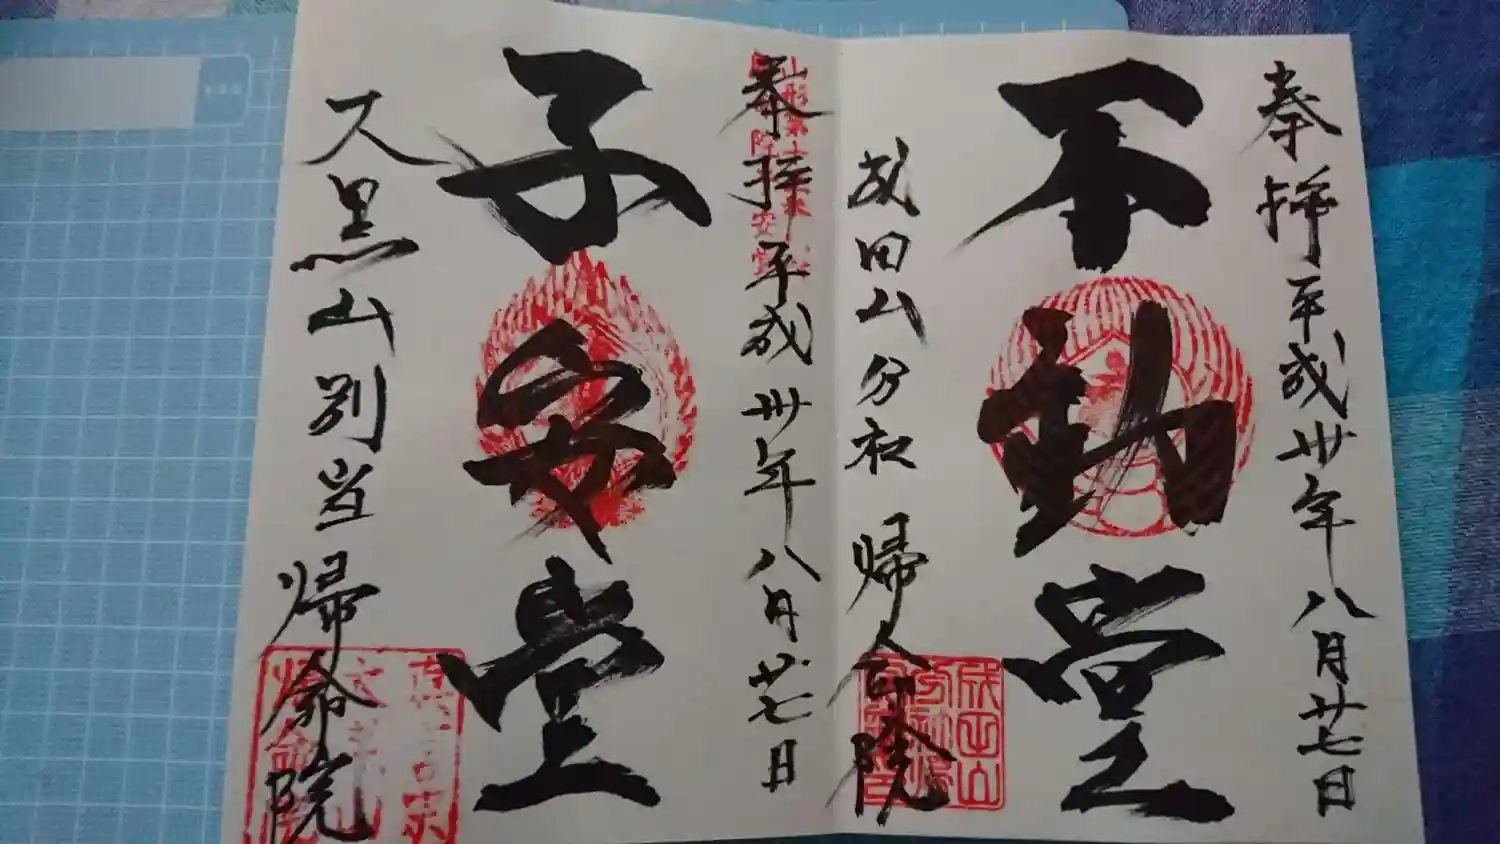 奉拝 平成卅年八月廿七日
不動堂
成田山分社 帰命院
奉拝 平成卅年八月廿七日
子安堂
大黒山別当 帰命院
成田山